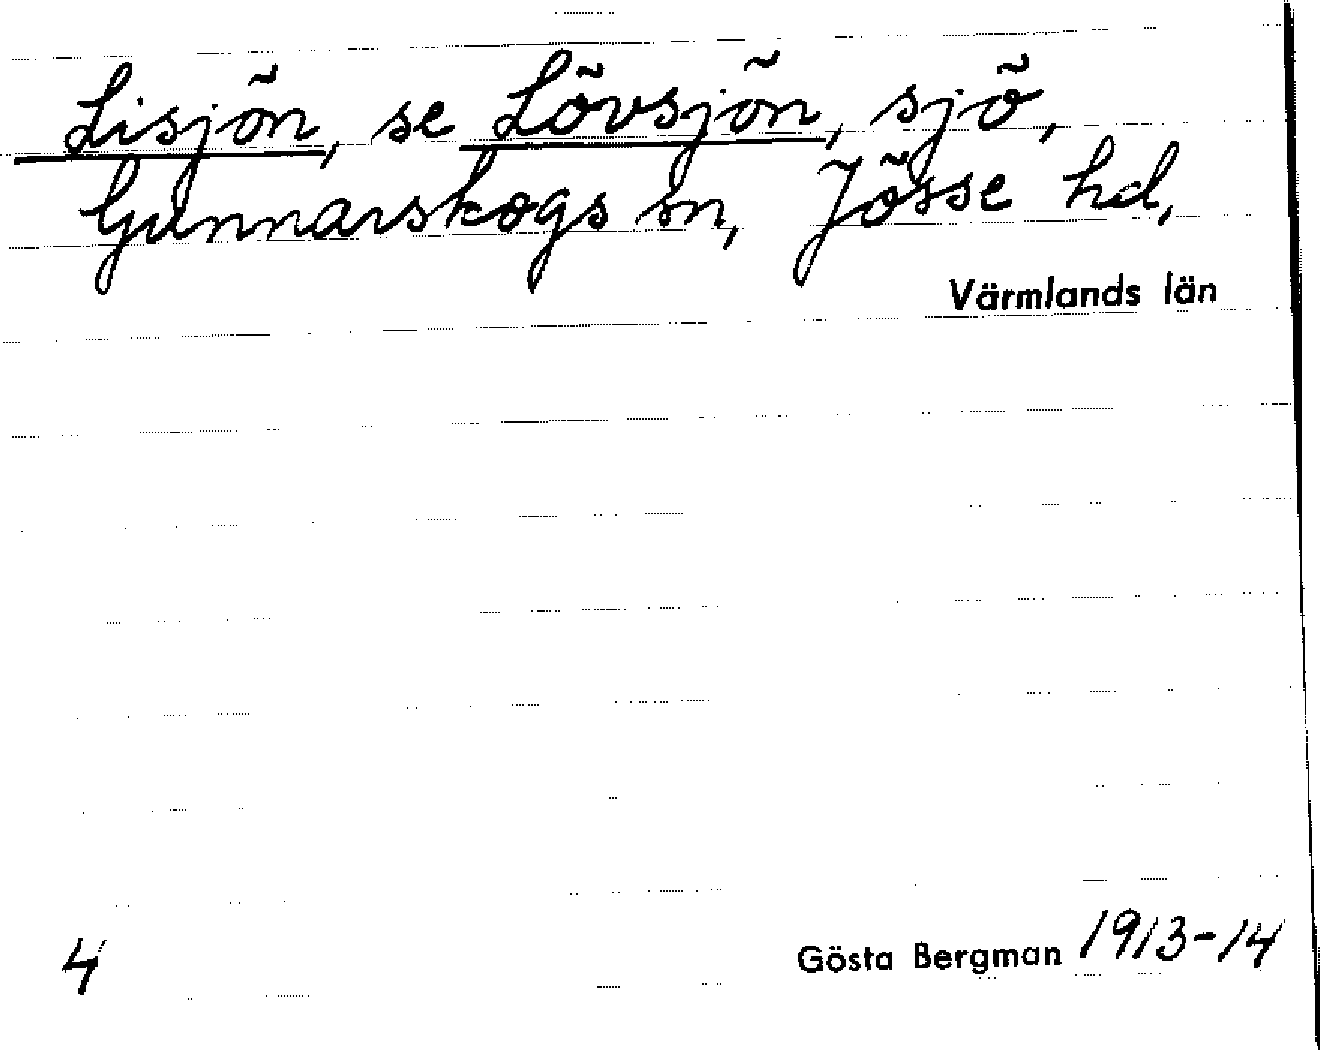 Lisjön, se Lövsjön, sjö,
Gunnarskogs sn, Jösse hd,
Värmlands län
4 Gösta Bergman 1913-14